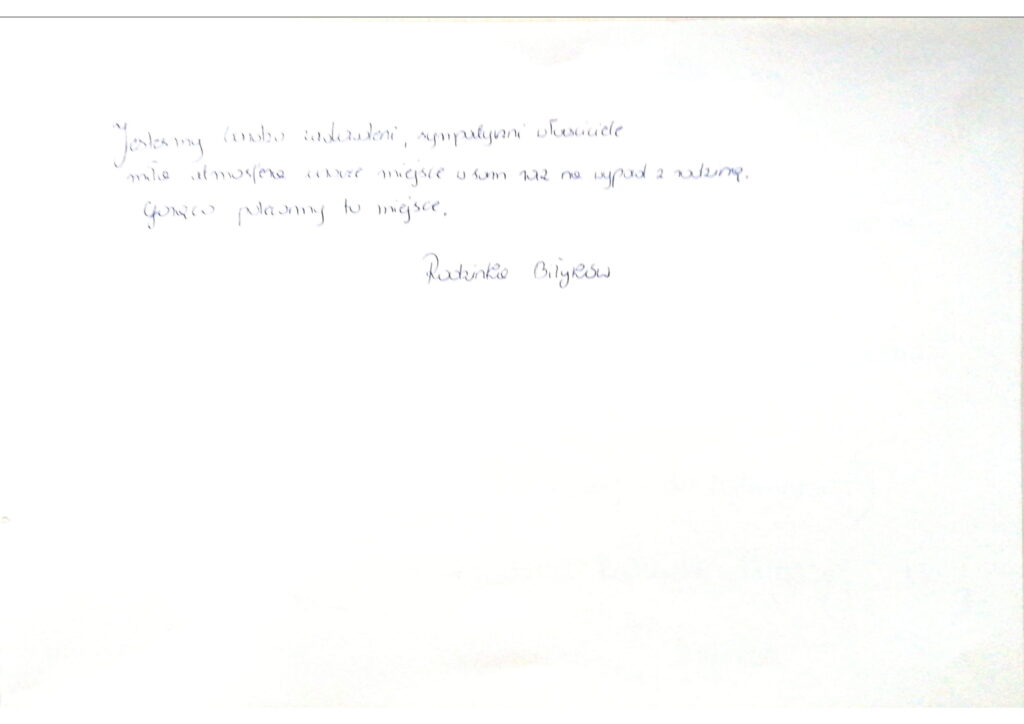 Jesteśmy bardzo zadowoleni, sympatyczni właściciele
miła atmosfera miejsce w sam raz na wypad z rodziną.
Gorąco polecamy to miejsce.
Rodzinka Biłyków